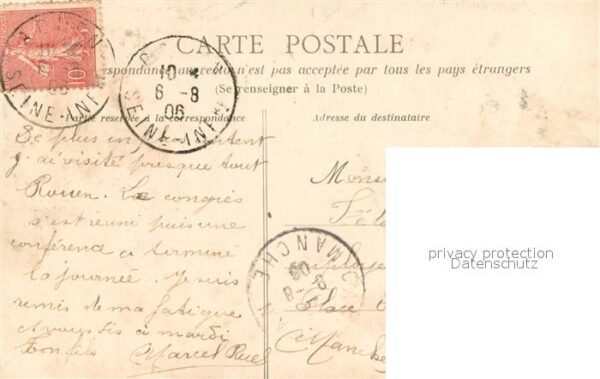 CARTE POSTALE
La correspondance au recto n'est pas acceptée par tous les pays étrangers
(Se renseigner à la Poste)
Partie réservée à la correspondance
Adresse du destinataire
10
6 -8
06
SEINE-INFRE
SEINE-INFRE
10
De plus en plus content
j'ai visité presque tout
Rouen. Le congrés
s'est réuni puis une
conférence a terminé
la journée. Je suis
remis de ma fatigue
et vous dis à mardi
Ton fils Marcel
Mons
Place
Manche
MANCHE
privacy protection
Datenschutz